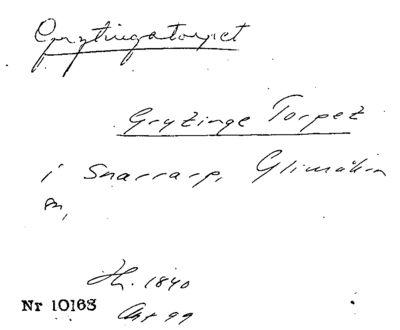 Grytingatorpet
Grytinge Torpet
i Snarrarp, Glimåkra
sn,
Th. 1840
Nr 10163